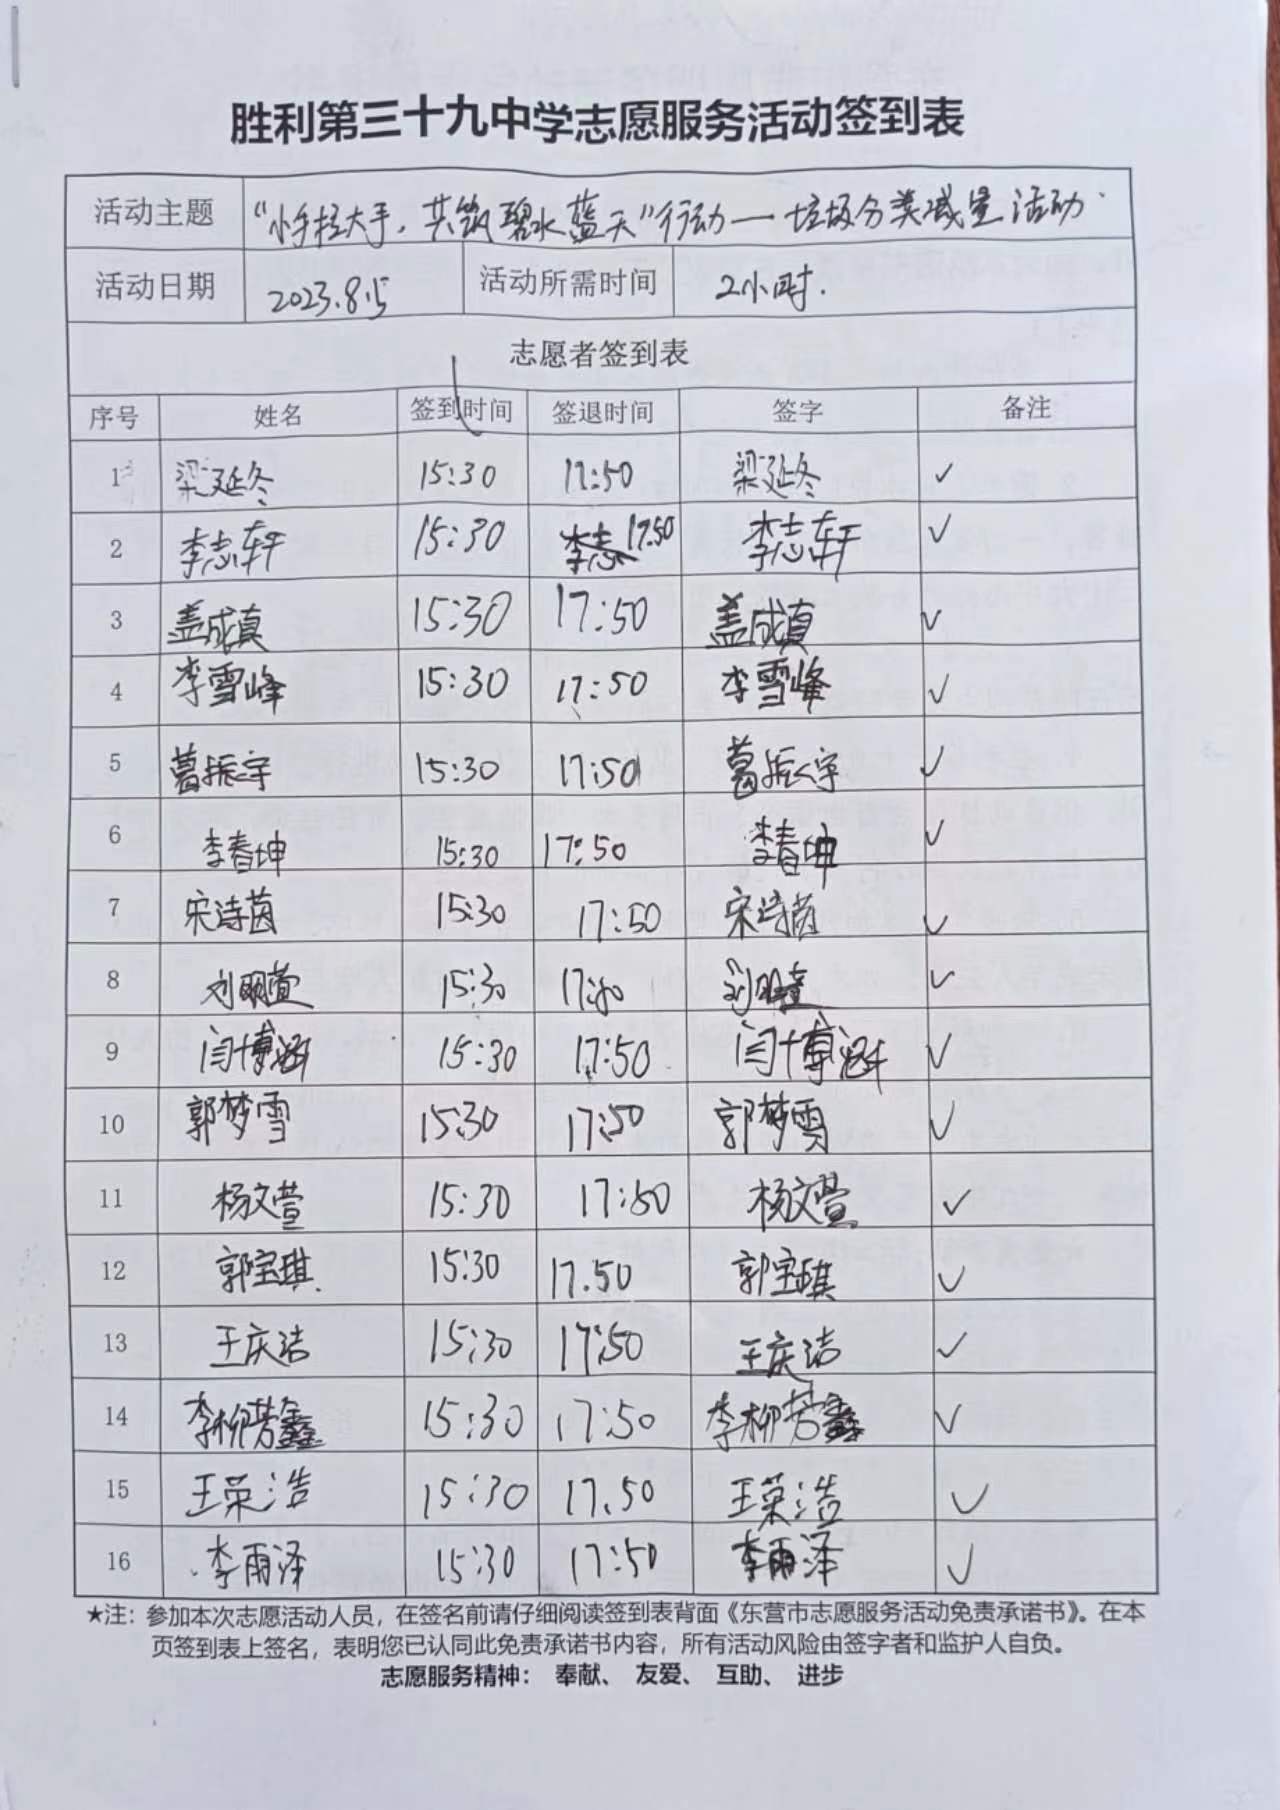 胜利第三十九中学志愿服务活动签到表
活动主题 “小手拉大手,共筑碧水蓝天”行动一垃圾分类减量活动.
活动日期 2023.8.5 活动所需时间 2小时.
志愿者签到表
序号 姓名 签到时间 签退时间 签字 备注
1 梁延冬 15:30 17:50 梁延冬 ✓
2 李志轩 15:30 李志 17:50 李志轩 ✓
3 盖成真 15:30 17:50 盖成真 ✓
4 李雪峰 15:30 17:50 李雪峰 ✓
5 葛振宇 15:30 17:50 葛振宇 ✓
6 李春坤 15:30 17:50 李春坤 ✓
7 宋诗茵 15:30 17:50 宋诗茵 ✓
8 刘明萱 15:30 17:50 刘明萱 ✓
9 闫博涵 15:30 17:50 闫博涵 ✓
10 郭梦雪 15:30 17:50 郭梦雪 ✓
11 杨文萱 15:30 17:50 杨文萱 ✓
12 郭宝琪 15:30 17.50 郭宝琪 ✓
13 王庆洁 15:30 17:50 王庆洁 ✓
14 李柳芳鑫 15:30 17:50 李柳芳鑫 ✓
15 王荣浩 15:30 17.50 王荣浩 ✓
16 李雨泽 15:30 17:50 李雨泽 ✓
★注:参加本次志愿活动人员,在签名前请仔细阅读签到表背面《东营市志愿服务活动免责承诺书》。在本
页签到表上签名,表明您已认同此免责承诺书内容,所有活动风险由签字者和监护人自负。
志愿服务精神: 奉献、 友爱、 互助、 进步